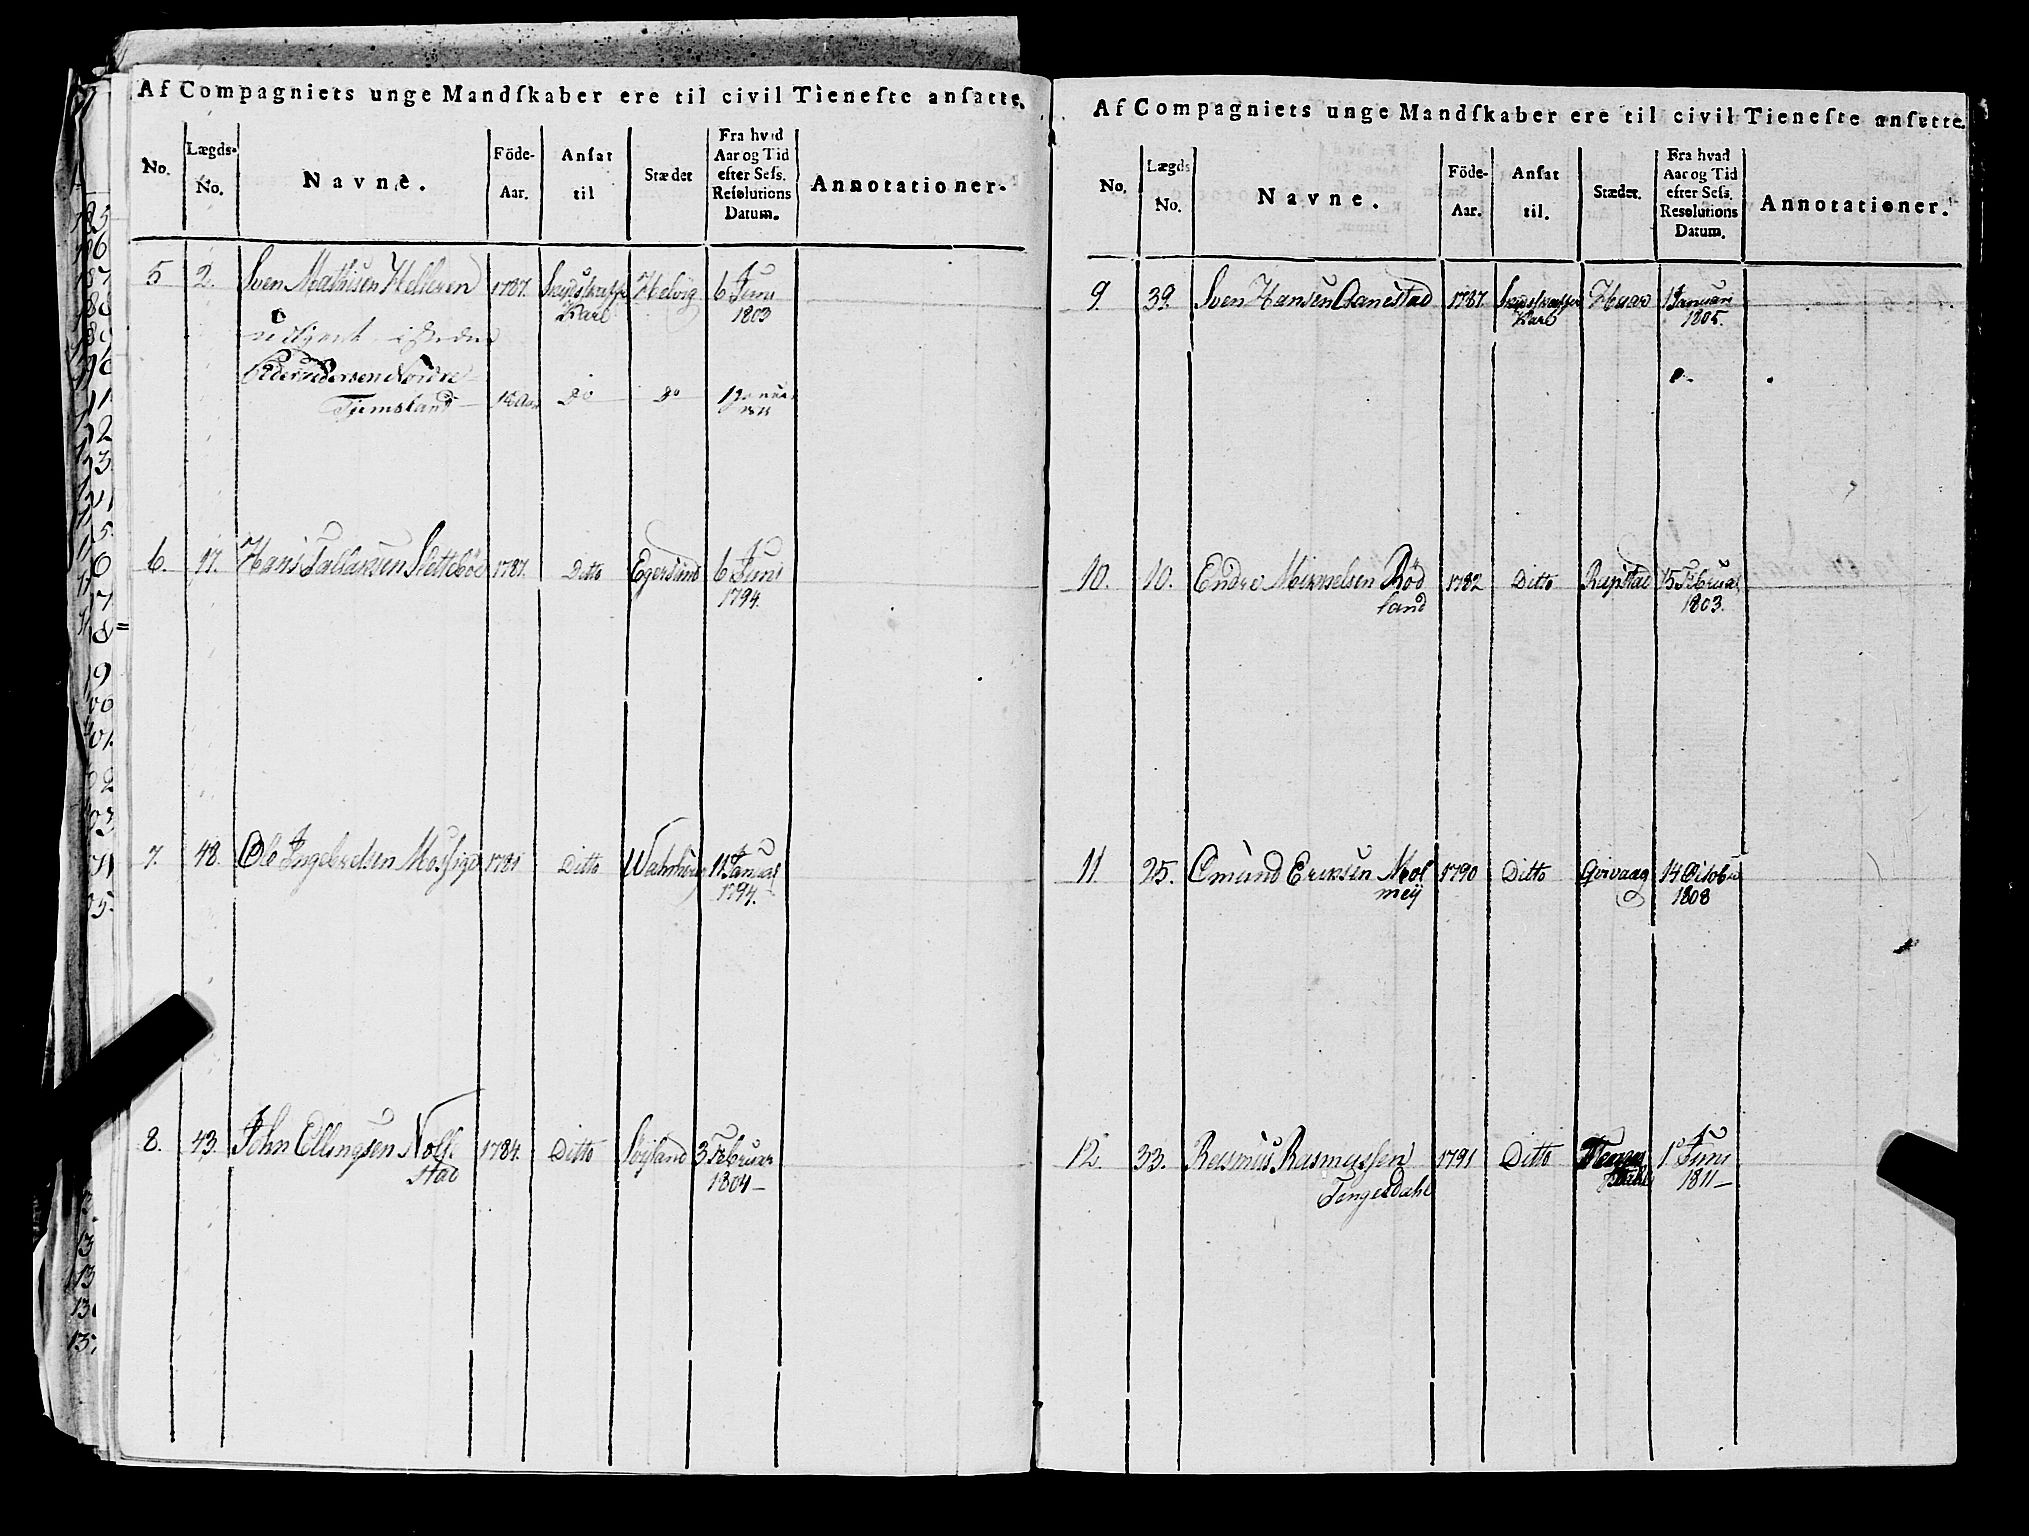 Af Compagniets unge Mandſkaber ere til civil Tieneſte anſatte.
No. Lægds- No. Navne. Föde- Aar. Anſat til Stædet Fra hvad Aar og Tid efter Seſs. Reſolutions Datum. Annotationer.
5 2. Sven Mathisen Helleren 1787. Skydsskaffer Helvig 6 Juni
Karl 1803
Peder Pedersen Nordre
Tjemsland Do Do
6. 17. Hans Tallaksen Slettebøe 1787. Ditto Egersund 6 Juni
1794.
7. 48. Ole Ingebretsen Mossige 1781 Ditto 11 Januar
1794.
8. 43. John Ellingsen Nolf 1784. Ditto Søyland 3 Februar
stad 1804
Af Compagniets unge Mandſkaber ere til civil Tieneſte anſatte.
No. Lægds No. Navne. Föde- Aar. Anſat til. Stædet. Fra hvad Aar og Tid efter Seſs. Reſolutions Datum. Annotationer.
9. 39. Sven Hansen Aanestad 1787 Skydsskaffer Haar 1 Januari
Karl 1805.
10. 10. Endre Mikkelsen Rød 1782 Ditto 15 Februar
land 1803.
11. 25. Omund Eriksen Meel 1790 Ditto 14 Octobr
meÿ 1808
12. 33. Rasmus Rasmussen 1791 Ditto 1 Juni
Tengesdahl 1811